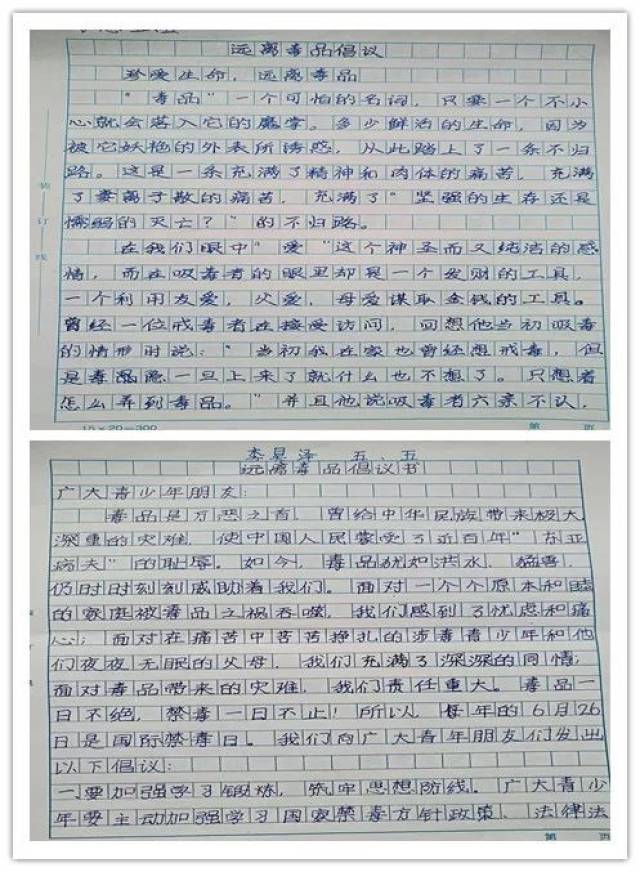 远离毒品倡议
珍爱生命，远离毒品
“毒品”一个可怕的名词，只要一个不小
心就会落入它的魔掌。多少鲜活的生命，因为
被它妖艳的外表所诱惑，从此踏上了一条不归
路。这是一条充满了精神和肉体的痛苦，充满
了妻离子散的痛苦，充满了“坚强的生存还是
懦弱的灭亡？”的不归路。
在我们眼中“爱”这个神圣而又纯洁的感
情，而在吸毒者的眼里却是一个发财的工具，
一个利用友爱，父爱，母爱谋取金钱的工具。
曾经一位戒毒者在接受访问，回想他当初吸毒
的情形时说：“当初我在家也曾经想戒毒，但
是毒品瘾一旦上来了就什么也不想了。只想着
怎么弄到毒品。”并且他说吸毒者六亲不认，
15×20=300
第 页
装
订
线
李昱泽 五、五
远离毒品倡议书
广大青少年朋友：
毒品是万恶之首，曾给中华民族带来极大
深重的灾难，使中国人民蒙受了近百年“东亚
病夫”的耻辱。如今，毒品犹如洪水、猛兽，
仍时时刻刻威胁着我们。面对一个个原本和睦
的家庭被毒品之祸吞噬，我们感到了忧虑和痛
心；面对在痛苦中苦苦挣扎的涉毒青少年和他
们夜夜无眠的父母，我们充满了深深的同情；
面对毒品带来的灾难，我们责任重大。毒品一
日不绝，禁毒一日不止！所以，每年的6月26
日是国际禁毒日。我们向广大青年朋友们发出
以下倡议：
一、要加强学习锻炼，筑牢思想防线。广大青少
年要主动加强学习国家禁毒方针政策、法律法
第 页